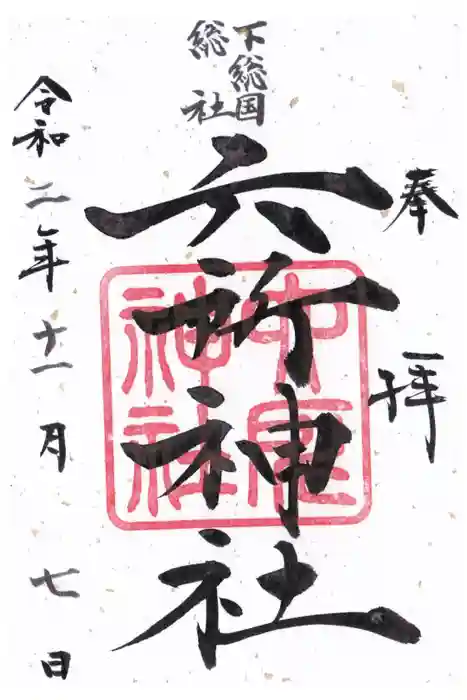 奉拝
下総国
総社
六所神社
中尾
神社
令和二年十一月七日